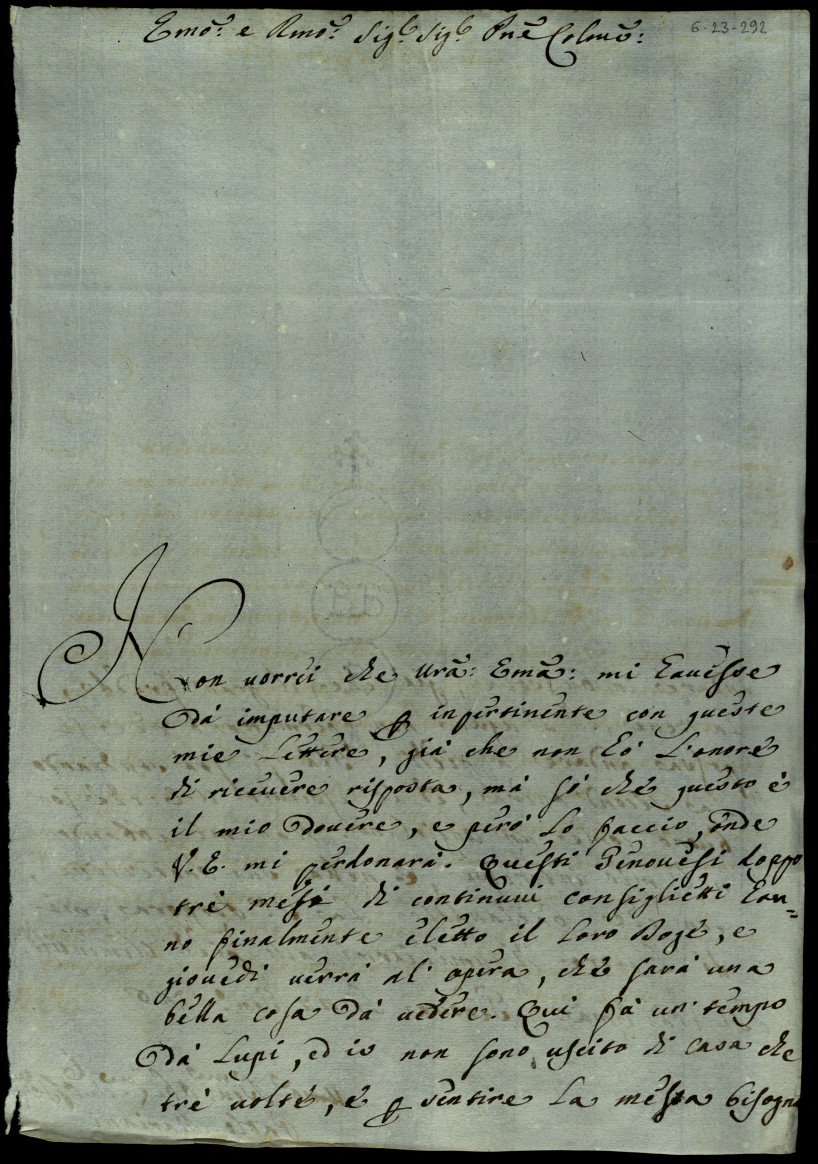 Emo: e Rmo: Sigr. Sigr. Prne Colmo:
6-23-292
Non vorrei che Vra: Ema: mi havesse
dà imputare p inpertinente con queste
mie lettere, già che non hò l'onore
di ricevere risposta, mà sò che questo è
il mio dovere, e però lo faccio, onde
V. E. mi perdonarà. Questi Genovesi doppo
trè mesi di continui consiglietti han=
no finalmente eletto il loro Doge, e
giovedì verrà al' opera, che sarà una
bella cosa dà vedere. Qui fà un' tempo
dà Lupi, ed io non sono uscito di casa che
trè volte, e p sentire la messa bisogna